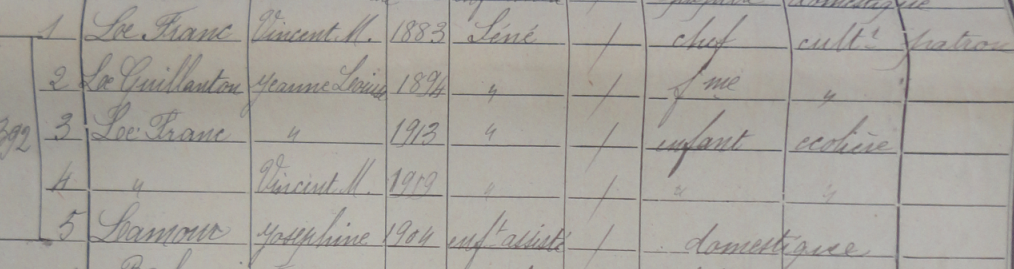 1 Le Franc Vincent M. 1883 Séné / chef cultr patron
2 Le Guillanton Jeanne Louise 1894 " / fme "
392 3 Le Franc " 1913 " / enfant ecolière
4 " Vincent M. 1919 " / " "
5 Lamour Joséphine 1904 enft assisté / domestique